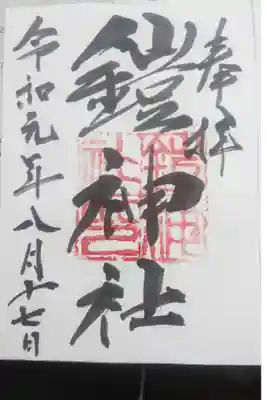 奉拝
鎧神社
令和元年八月十七日